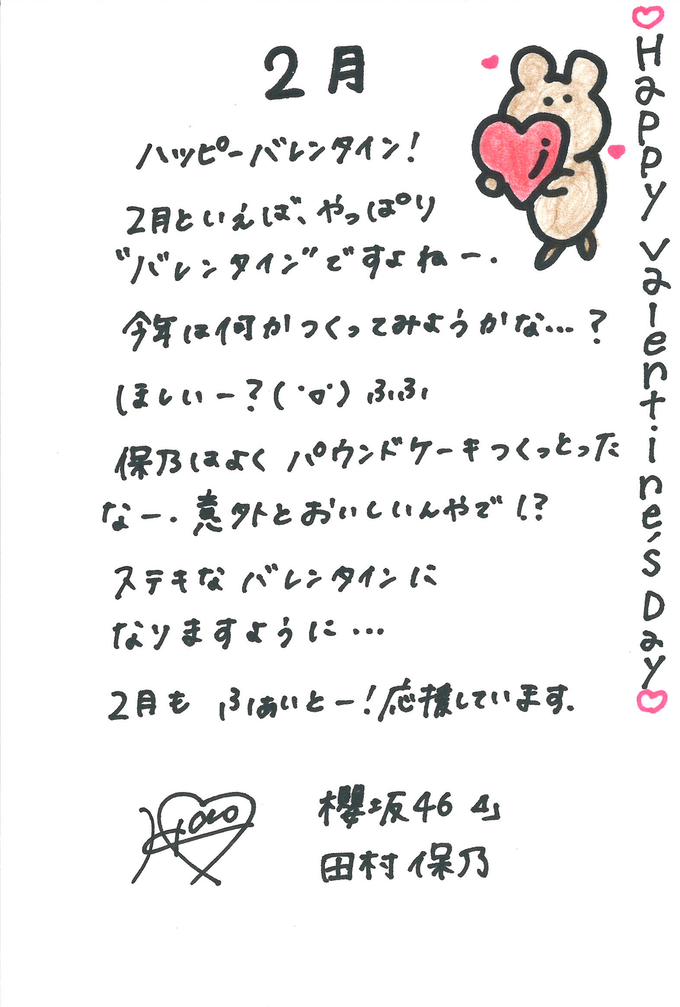 2月
ハッピーバレンタイン!
2月といえば、やっぱり
"バレンタイン"ですよねー.
今年は何かつくってみようかな…?
ほしいー?( ˙▿˙ )ふふ
保乃はよくパウンドケーキつくっとった
なー.意外とおいしいんやで!?
ステキなバレンタインに
なりますように…
2月も ふぁいとー!応援しています.
櫻坂46
田村保乃
Hono
Happy Valentine's Day